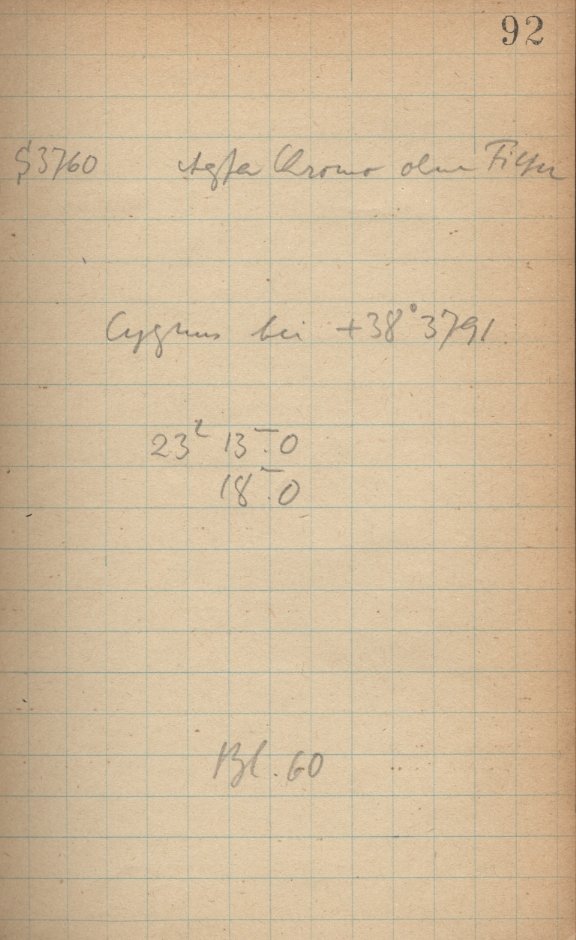 92
S3760 Agfa Chromo ohne Filter
Cygnus bei +38°3791
23ʰ 13ᵐ.0
18ᵐ.0
Bl. 60